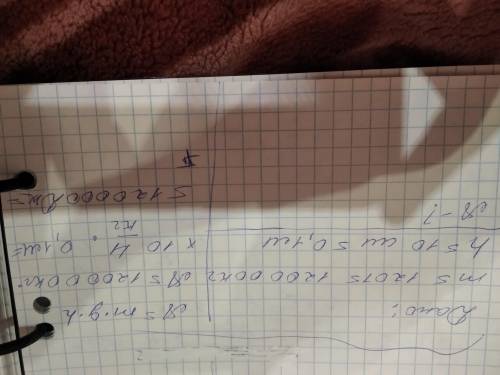 Дано:
m = 120т = 120000кг
h = 10 см = 0,1м
A - ?
A = m·g·h
A = 120000кг·
× 10 Н/кг · 0,1м =
= 120000 Дж =